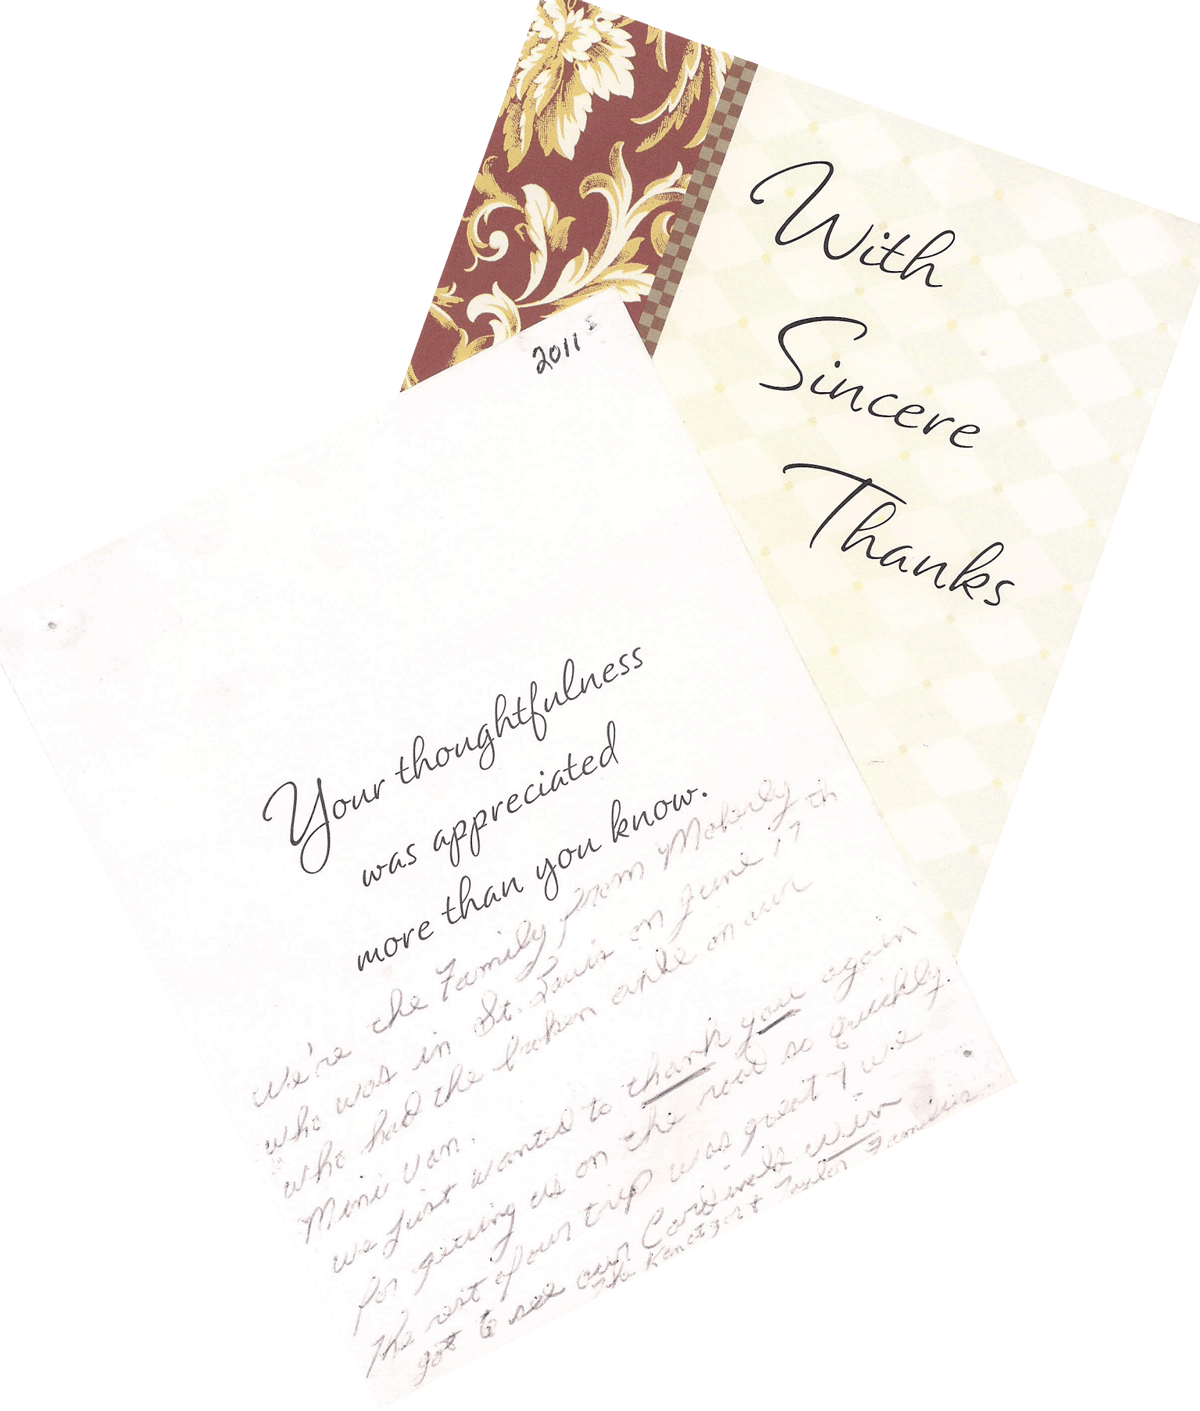 With
Sincere
Thanks
2011
Your thoughtfulness
was appreciated
more than you know.
We're the Family from Moberly
who was in St. Louis on June 17th
who had the broken axle on our
Mini van.
we just wanted to thank you again
for getting us on the road so quickly.
The rest of our trip was great & we
got to see our Cardinals win
The Taylor Families